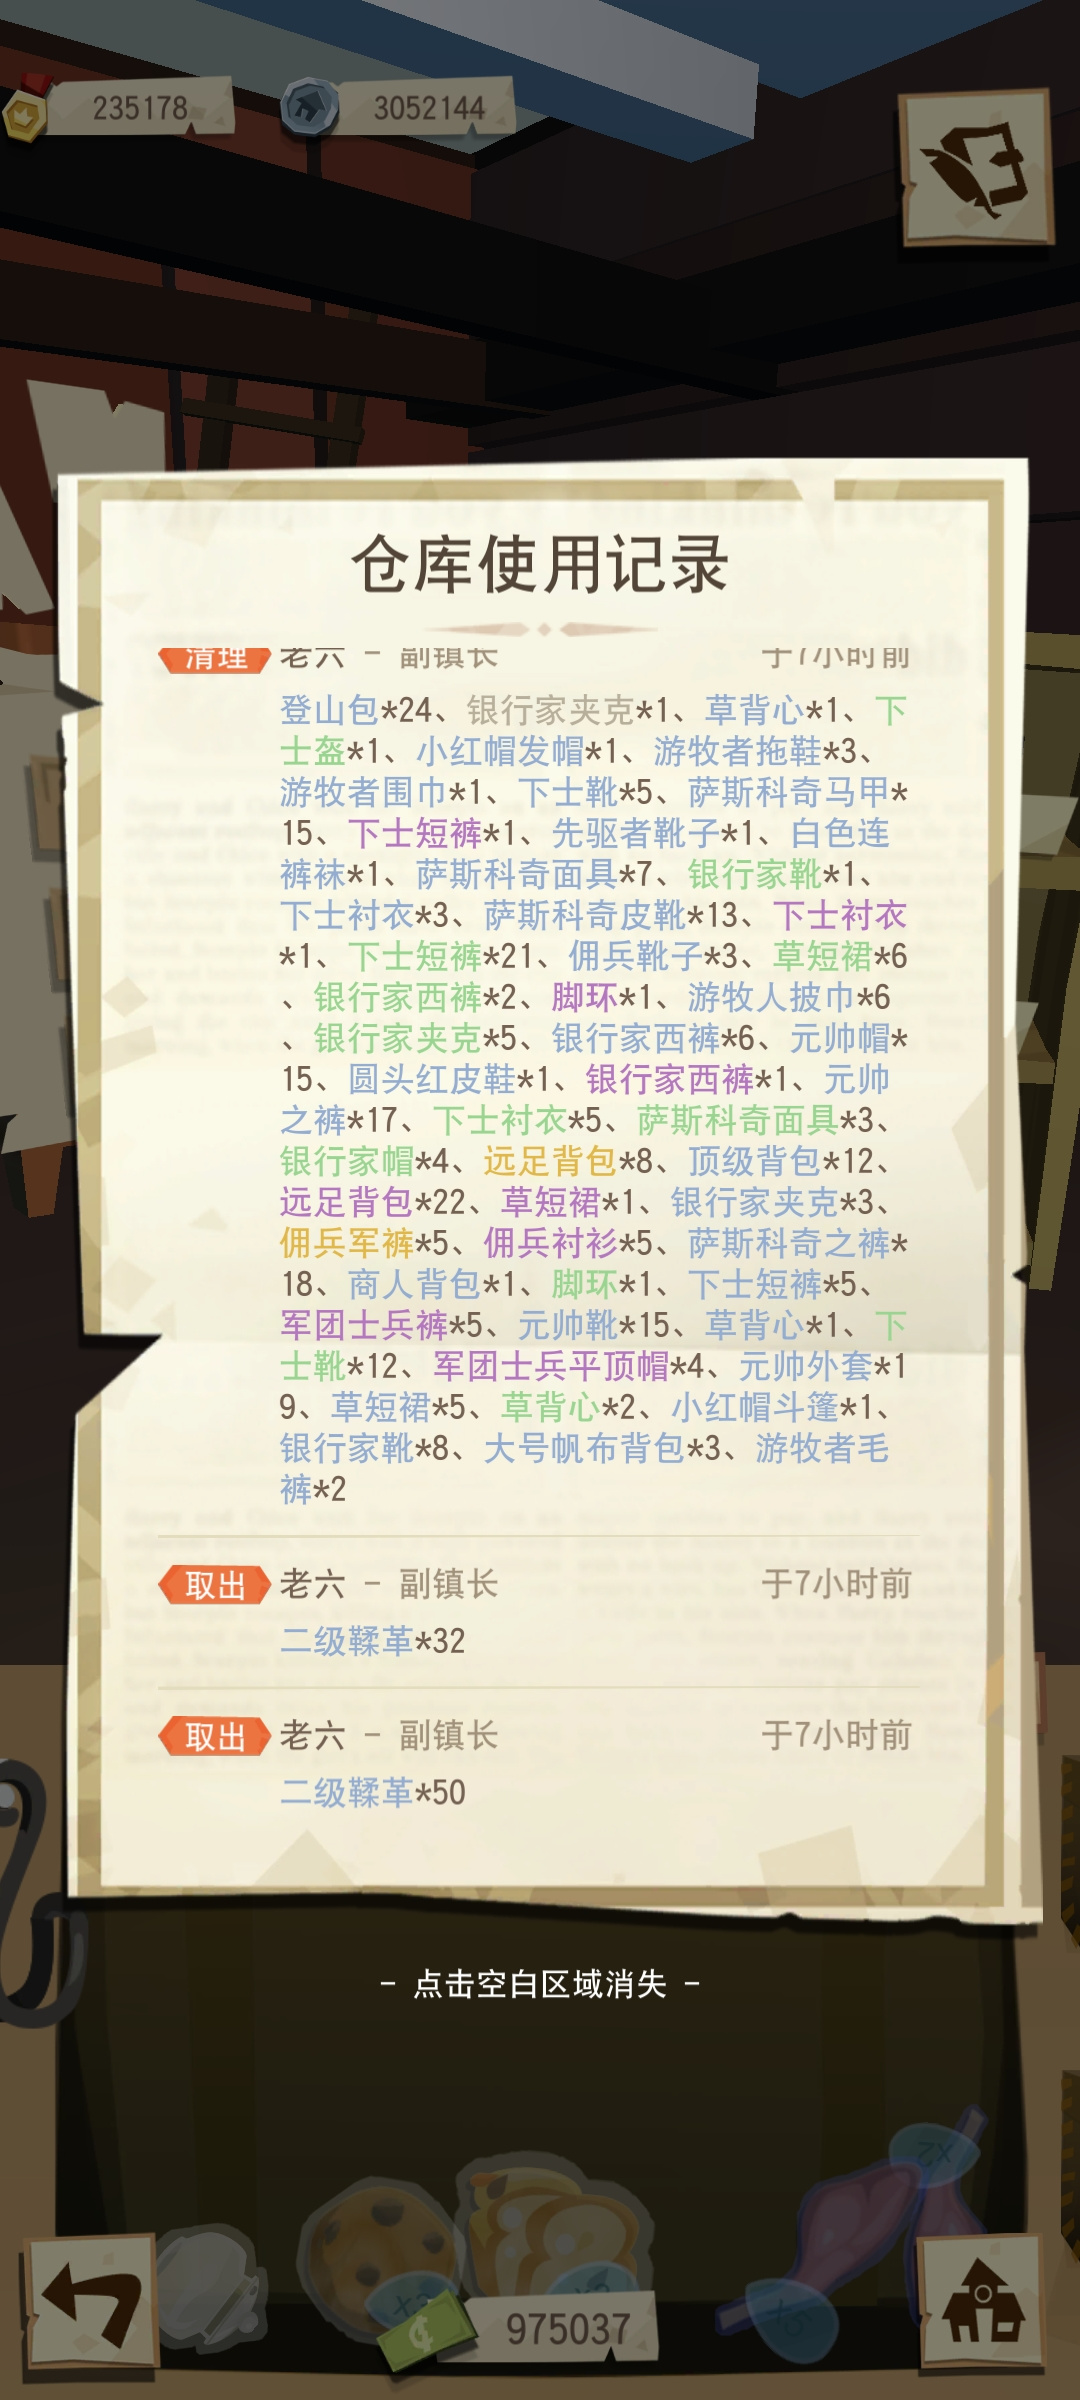 235178
3052144
仓库使用记录
清理 老六 - 副镇长 于7小时前
登山包*24、银行家夹克*1、草背心*1、下
士盔*1、小红帽发帽*1、游牧者拖鞋*3、
游牧者围巾*1、下士靴*5、萨斯科奇马甲*
15、下士短裤*1、先驱者靴子*1、白色连
裤袜*1、萨斯科奇面具*7、银行家靴*1、
下士衬衣*3、萨斯科奇皮靴*13、下士衬衣
*1、下士短裤*21、佣兵靴子*3、草短裙*6
、银行家西裤*2、脚环*1、游牧人披巾*6
、银行家夹克*5、银行家西裤*6、元帅帽*
15、圆头红皮鞋*1、银行家西裤*1、元帅
之裤*17、下士衬衣*5、萨斯科奇面具*3、
银行家帽*4、远足背包*8、顶级背包*12、
远足背包*22、草短裙*1、银行家夹克*3、
佣兵军裤*5、佣兵衬衫*5、萨斯科奇之裤*
18、商人背包*1、脚环*1、下士短裤*5、
军团士兵裤*5、元帅靴*15、草背心*1、下
士靴*12、军团士兵平顶帽*4、元帅外套*1
9、草短裙*5、草背心*2、小红帽斗篷*1、
银行家靴*8、大号帆布背包*3、游牧者毛
裤*2
取出 老六 - 副镇长 于7小时前
二级鞣革*32
取出 老六 - 副镇长 于7小时前
二级鞣革*50
- 点击空白区域消失 -
975037